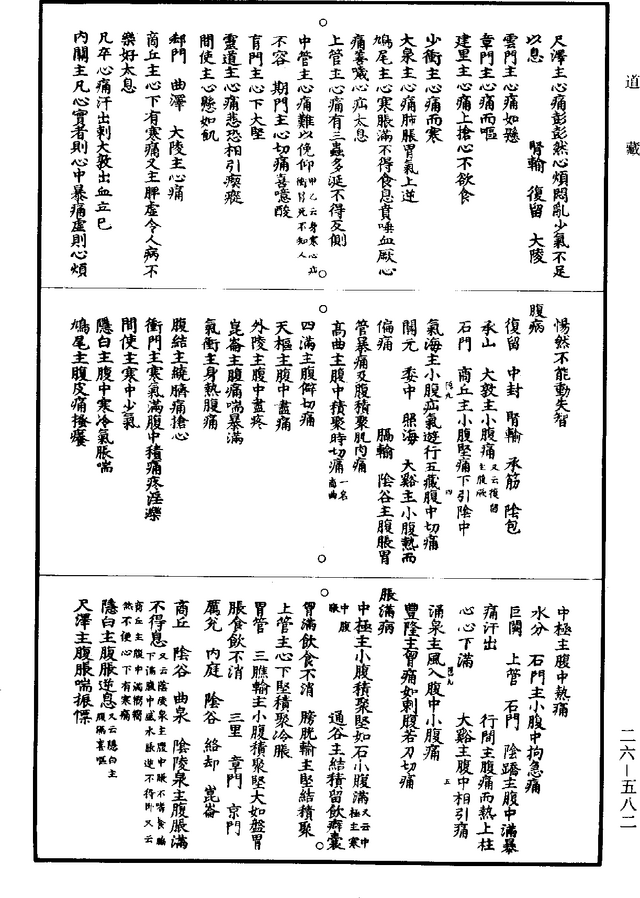 道藏
尺澤主心痛彭彭然心煩悶亂少氣不足
以息　腎輸　復留　大陵
雲門主心痛如懸
章門主心痛而嘔
建里主心痛上搶心不欲食
少衝主心痛而寒
大泉主心痛肺脹胃氣上逆
鳩尾主心寒脹滿不得食息賁唾血厥心
痛善噦心疝太息
上管主心痛有三蟲多涎不得反側
中管主心痛難以俛仰甲乙云身寒心疝衝冒死不知人
不容　期門主心切痛喜噫酸
肓門主心下大堅
靈道主心痛悲恐相引瘈瘲
間使主心懸如飢
郄門　曲澤　大陵主心痛
商丘主心下有寒痛又主脾虛令人病不
樂好太息
凡卒心痛汗出刺大敦出血立已
內關主凡心實者則心中暴痛虛則心煩
惕然不能動失智
腹病
復留　中封　腎輸　承筋　陰包
承山　大敦主小腹痛又云復留主腹厥
石門　商丘主小腹堅痛下引陰中
氣海主小腹疝氣遊行五藏腹中切痛
關元　委中　照海　大谿主小腹熱而
偏痛　膈輸　陰谷主腹脹胃
管暴痛及腹積聚肌肉痛
高曲主腹中積聚時切痛一名商曲
四滿主腹僻切痛
天樞主腹中盡痛
外陵主腹中盡疼
崑崙主腹痛喘暴滿
氣衝主身熱腹痛
腹結主繞臍痛搶心
衝門主寒氣滿腹中積痛疼淫濼
間使主寒中少氣
隱白主腹中寒冷氣脹喘
鳩尾主腹皮痛搔癢
中極主腹中熱痛
水分　石門主小腹中拘急痛
巨闕　上管　石門　陰蹻主腹中滿暴
痛汗出　行間主腹痛而熱上柱
心心下滿　大谿主腹中相引痛
涌泉主風入腹中小腹痛
豐隆主胷痛如刺腹若刀切痛
脹滿病
中極主小腹積聚堅如石小腹滿又云中極主寒中腹
脹　通谷主結積留飲癖囊
胷滿飲食不消　膀胱輸主堅結積聚
上管主心下堅積聚冷脹
胃管　三膲輸主小腹積聚堅大如盤胃
脹食飲不消　三里　章門　京門
厲兌　內庭　陰谷　絡却　崑崙
商丘　陰谷　曲泉　陰陵泉主腹脹滿
不得息又云陰陵泉主腹中脹不嗜食脇下滿腹中盛水脹逆不得卧又云商丘主腹中滿嚮嚮然不便心下有寒痛
隱白主腹脹逆息又云隱白主腹滿喜嘔
尺澤主腹脹喘振慄
二六—五八二